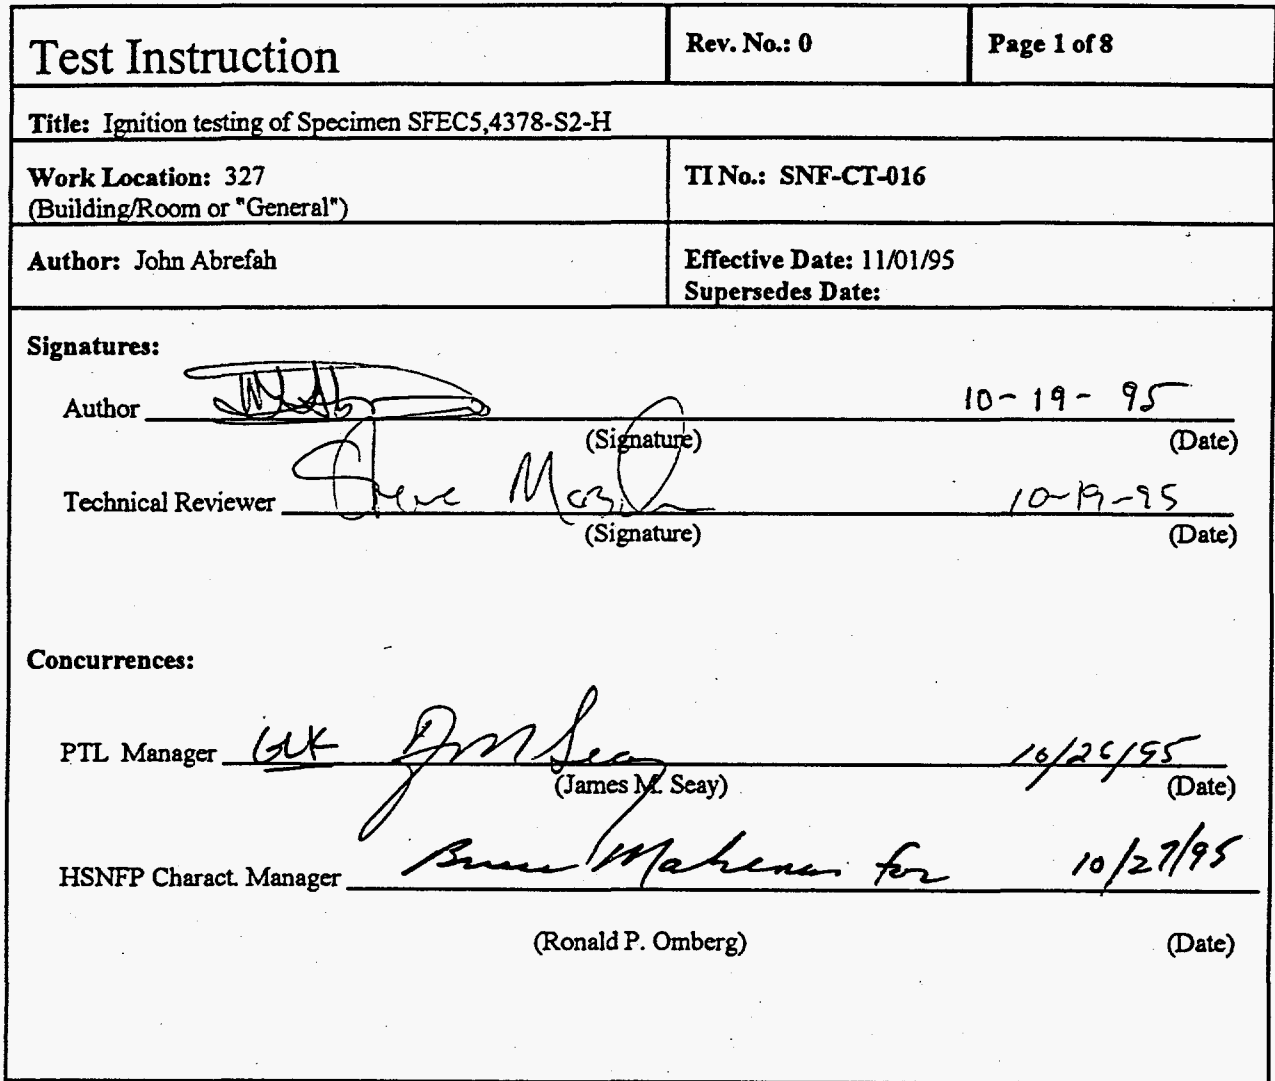 Test Instruction
Rev. No.: 0
Page 1 of 8
Title: Ignition testing of Specimen SFEC5,4378-S2-H
Work Location: 327
(Building/Room or "General")
TI No.: SNF-CT-016
Author: John Abrefah
Effective Date: 11/01/95
Supersedes Date:
Signatures:
Author 10-19-95
(Signature) (Date)
Technical Reviewer Steve 10-19-95
(Signature) (Date)
Concurrences:
PTL Manager JM Seay 10/26/95
(James M. Seay) (Date)
HSNFP Charact. Manager Bruce for 10/27/95
(Ronald P. Omberg) (Date)